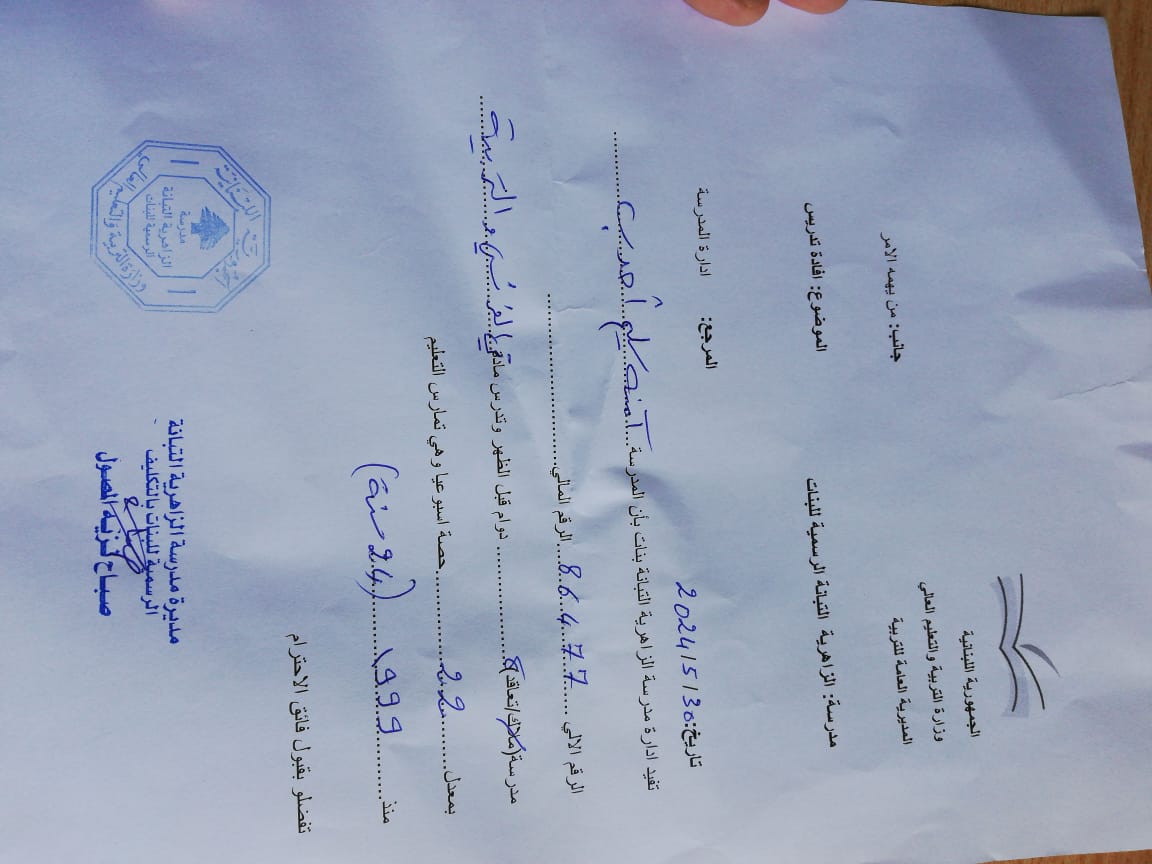 الجمهورية اللبنانية
وزارة التربية والتعليم العالي
المديرية العامة للتربية
جانب: من يهمه الامر
مدرسة: الزاهرية التبانة الرسمية للبنات
الموضوع: افادة تدريس
المرجع: ادارة المدرسة
تاريخ: 2024/5/30
تفيد ادارة مدرسة الزاهرية التبانة بنات بأن المدرسة آمنه
الرقم الالي 86477 الرقم المالي
مدرسة (ملاك/تعاقد) دوام قبل الظهر وتدرس مادة التربية
بمعدل 22 حصة اسبوعيا وهي تمارس التعليم
منذ 1999 (24 سنة)
تفضلو بقبول فائق الاحترام
مديرة مدرسة الزاهرية التبانة
الرسمية للبنات بالتكليف
صباح كزيه الصول
الجمهورية اللبنانية
وزارة التربية والتعليم العالي
مدرسة
الزاهرية التبانة
الرسمية للبنات